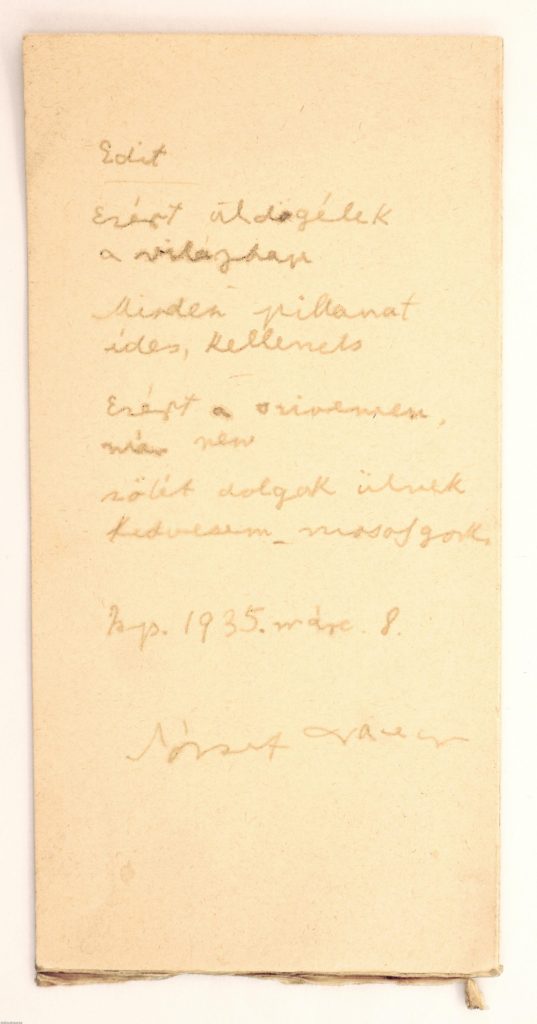 Edit
Ezért üldögélek
a világban
Minden pillanat
édes, kellemes
Ezért a szívemen,
már nem
sötét dolgok ülnek
kedvesem_ mosolygok.
Bp. 1935. márc. 8.
József